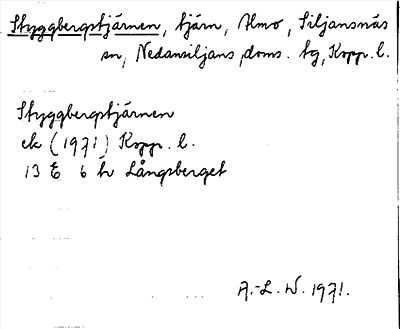 Styggbergstjärnen, tjärn, Almo, Siljansnäs
sn, Nedansiljans doms. tg, Kopp. l.
Styggbergstjärnen
ek (1971) Kopp. l.
13 E 6 h Långsberget
A.-L. W. 1971.